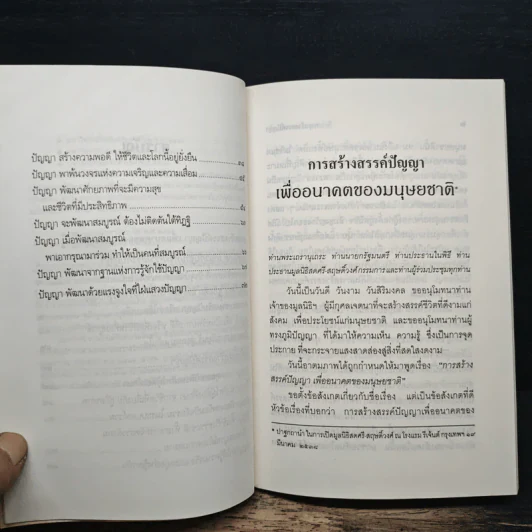 ปัญญา สร้างความพอดี ให้ชีวิตและโลกนี้อยู่ยั่งยืน
ปัญญา พาพ้นวงจรแห่งความเจริญและความเสื่อม
ปัญญา พัฒนาศักยภาพที่จะมีความสุข
และชีวิตที่มีประสิทธิภาพ
ปัญญา จะพัฒนาสมบูรณ์ ต้องไม่ติดตันใต้ทิฏฐิ
ปัญญา เมื่อพัฒนาสมบูรณ์
พาเอากรุณามาร่วม ทำให้เป็นคนที่สมบูรณ์
ปัญญา พัฒนาจากฐานแห่งการรู้จักใช้ปัญญา
ปัญญา พัฒนาด้วยแรงจูงใจที่ใฝ่แสวงปัญญา
การสร้างสรรค์ปัญญา
เพื่ออนาคตของมนุษยชาติ*
ท่านพระเถรานุเถระ ท่านนายกรัฐมนตรี ท่านประธานในพิธี ท่าน
ประธานมูลนิธิสดศรี-สฤษดิ์วงศ์ กรรมการ และท่านผู้ร่วมประชุมทุกท่าน
วันนี้เป็นวันดี วันงาม วันสิริมงคล ขออนุโมทนาท่าน
เจ้าของมูลนิธิฯ ผู้มีกุศลเจตนาที่จะสร้างสรรค์ชีวิตที่ดีงามแก่
สังคม เพื่อประโยชน์แก่มนุษยชาติ และขออนุโมทนาท่านผู้
ทรงภูมิปัญญา ที่ได้มาให้ความเห็น ความรู้ ซึ่งเป็นการจุด
ประกาย ที่จะกระจายแสงสาดส่องสู่สิ่งที่สดใสงดงาม
วันนี้อาตมภาพได้ถูกกำหนดให้มาพูดเรื่อง "การสร้าง
สรรค์ปัญญา เพื่ออนาคตของมนุษยชาติ"
ขอตั้งข้อสังเกตเกี่ยวกับชื่อเรื่อง แต่เป็นข้อสังเกตที่ดี
หัวข้อเรื่องที่บอกว่า การสร้างสรรค์ปัญญาเพื่ออนาคตของ
* ปาฐกถานำ ในการเปิดมูลนิธิสดศรี-สฤษดิ์วงศ์ ณ โรงแรม รีเจ้นต์ กรุงเทพฯ ๑๙
มีนาคม ๒๕๓๘